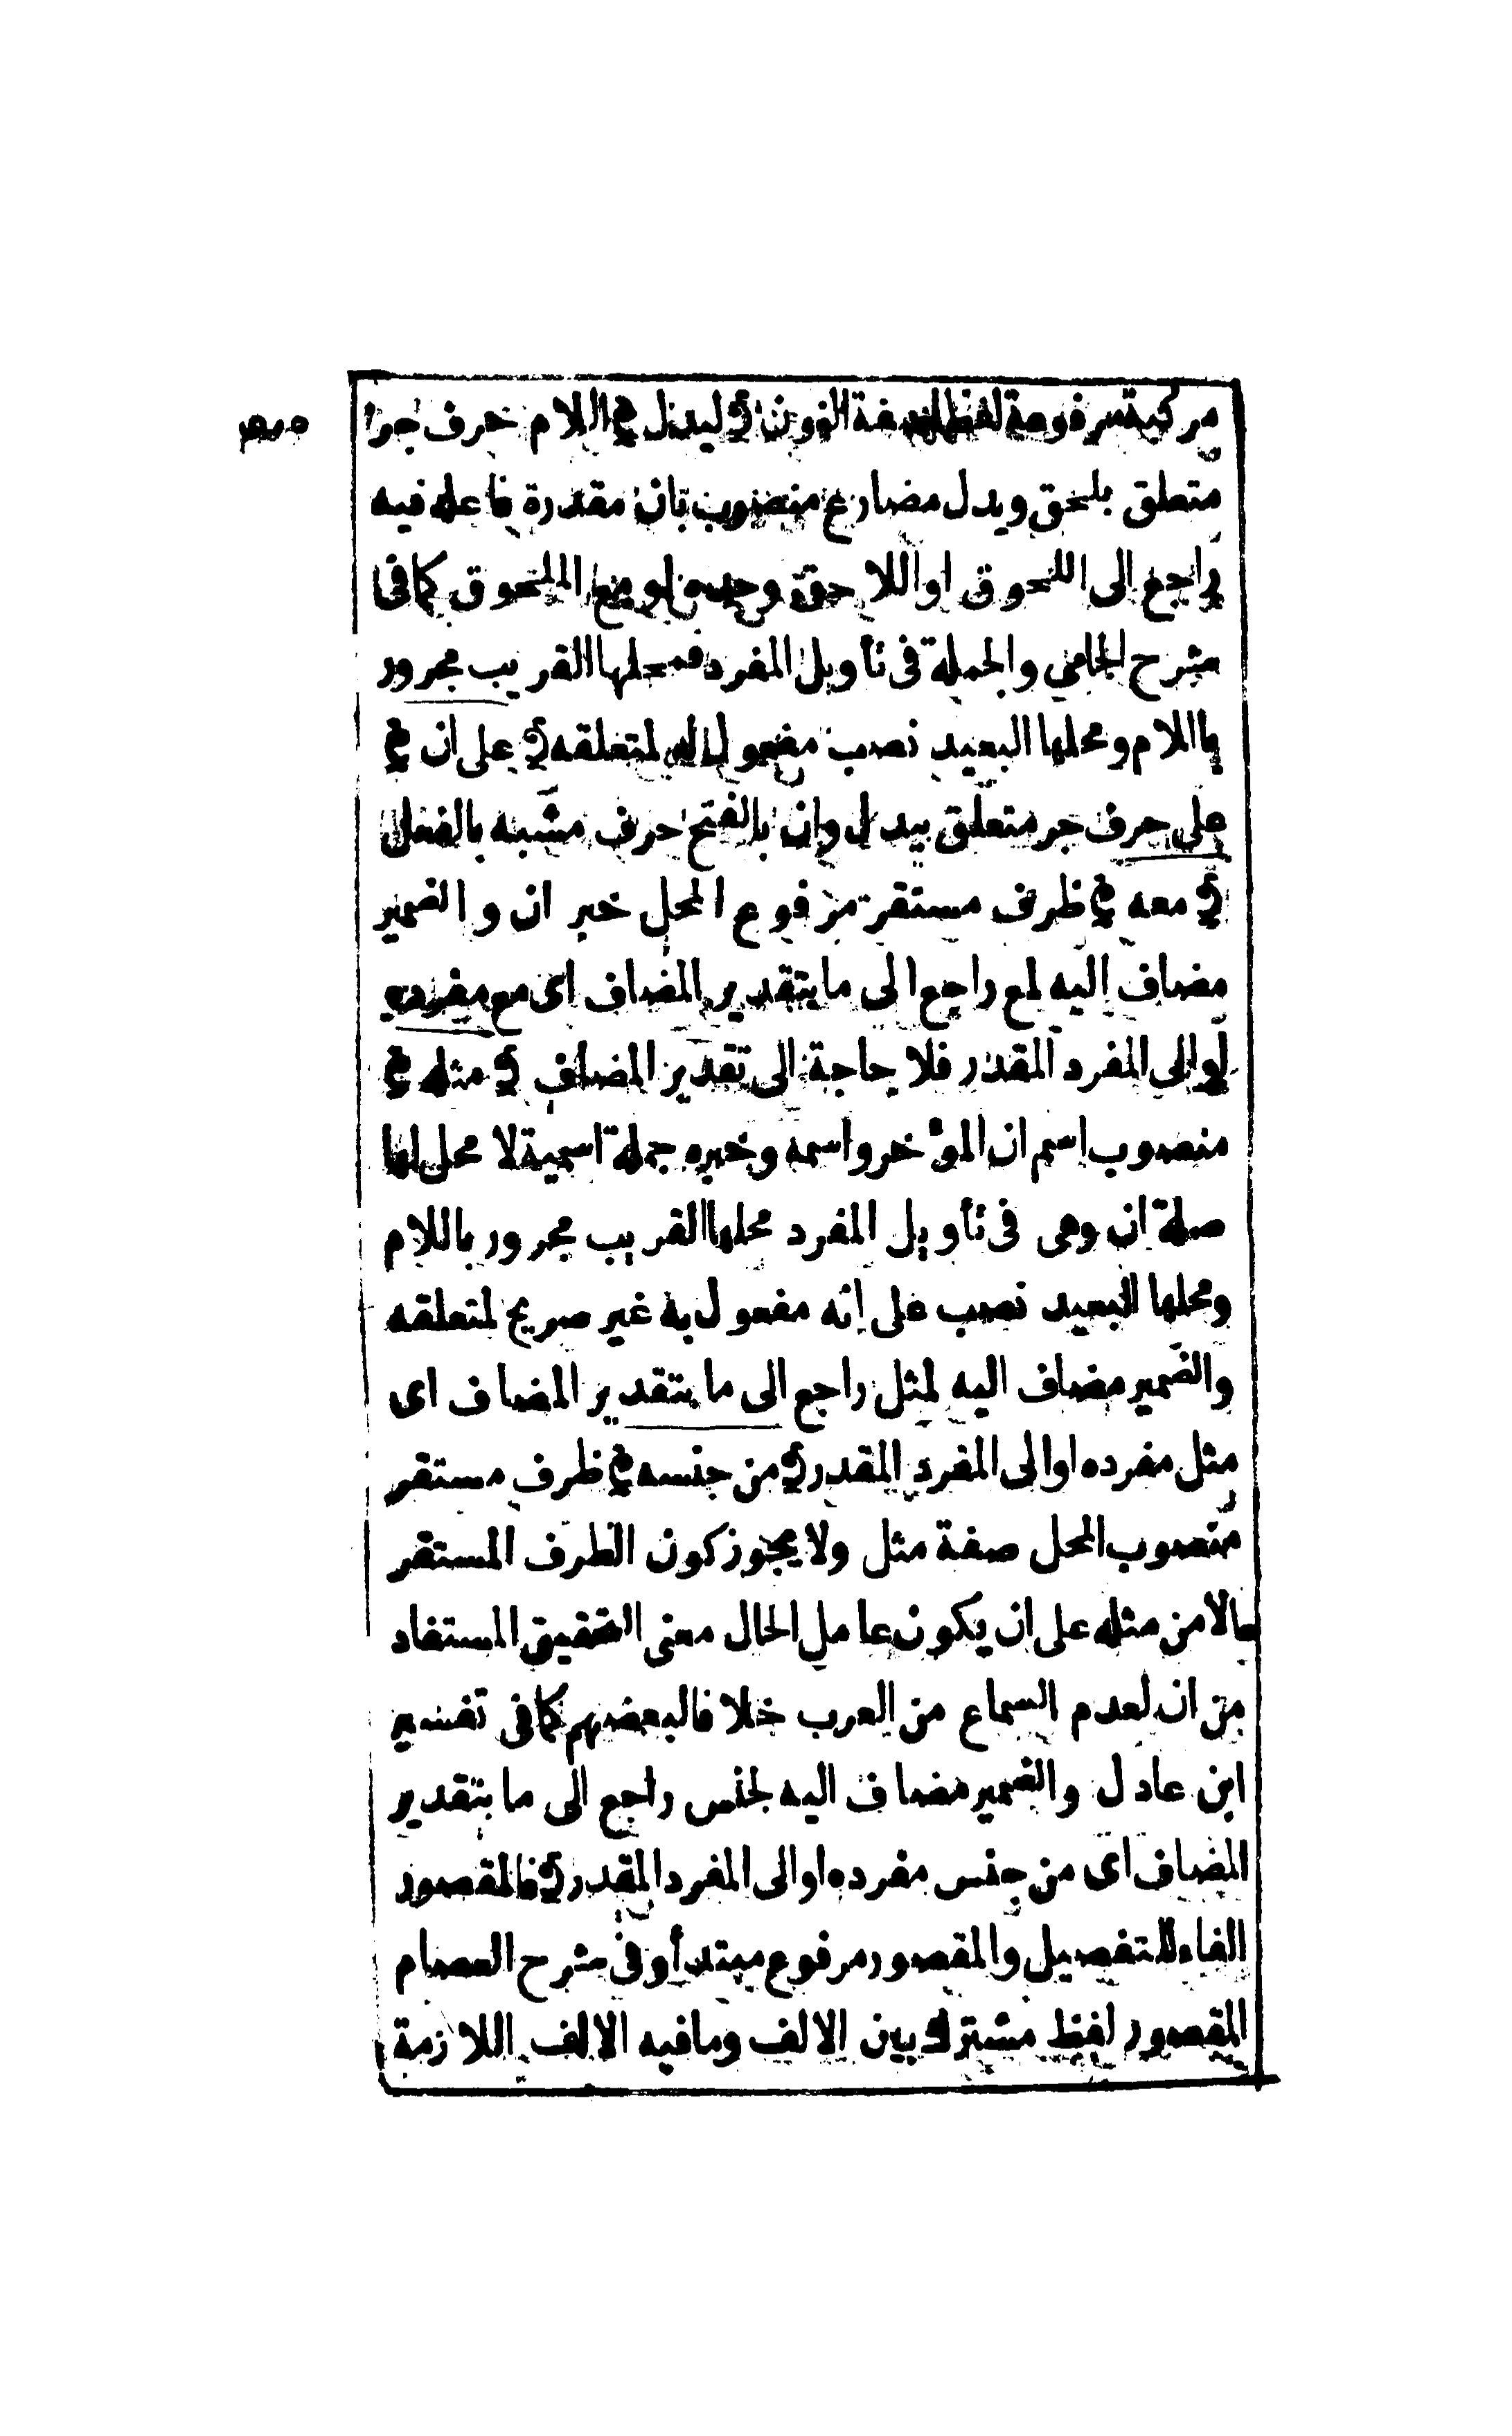 مركبة مرفوعة لفظا صفة النون ﴿ ليدل ﴾ اللام حرف جر
متعلق بلحق ويدل مضارع منصوب بان مقدرة فاعله فيه
راجع الى اللحوق او اللاحق وحده او مع الملحوق كما فى
شرح الجامى والجملة فى تأويل المفرد فمحلها القريب مجرور
باللام ومحلها البعيد نصب مفعول له لمتعلقه ﴿ على ان ﴾
على حرف جر متعلق بيدل وان بالفتح حرف مشبه بالفعل
﴿ معه ﴾ ظرف مستقر مرفوع المحل خبر ان والضمير
مضاف اليه لمع راجع الى ما بتقدير المضاف اى مع مفرده
او الى المفرد المقدر فلا حاجة الى تقدير المضاف ﴿ مثله ﴾
منصوب اسم ان المؤخر واسمه وخبره جملة اسمية لا محل لها
صلة ان وهى فى تأويل المفرد محلها القريب مجرور باللام
ومحلها البعيد نصب على انه مفعول به غير صريح لمتعلقه
والضمير مضاف اليه لمثل راجع الى ما بتقدير المضاف اى
مثل مفرده او الى المفرد المقدر ﴿ من جنسه ﴾ ظرف مستقر
منصوب المحل صفة مثل ولا يجوز كون الظرف المستقر
حالا من مثله على ان يكون عامل الحال معنى التحقيق المستفاد
من ان لعدم السماع من العرب خلافا لبعضهم كما فى تفسير
ابن عادل والضمير مضاف اليه لجنس راجع الى ما بتقدير
المضاف اى من جنس مفرده او الى المفرد المقدر ﴿ فالمقصور
الفاء للتفصيل والمقصور مرفوع مبتدأ وفى شرح العصام
المقصور لفظ مشترك بين الالف وما فيه الالف اللازمة